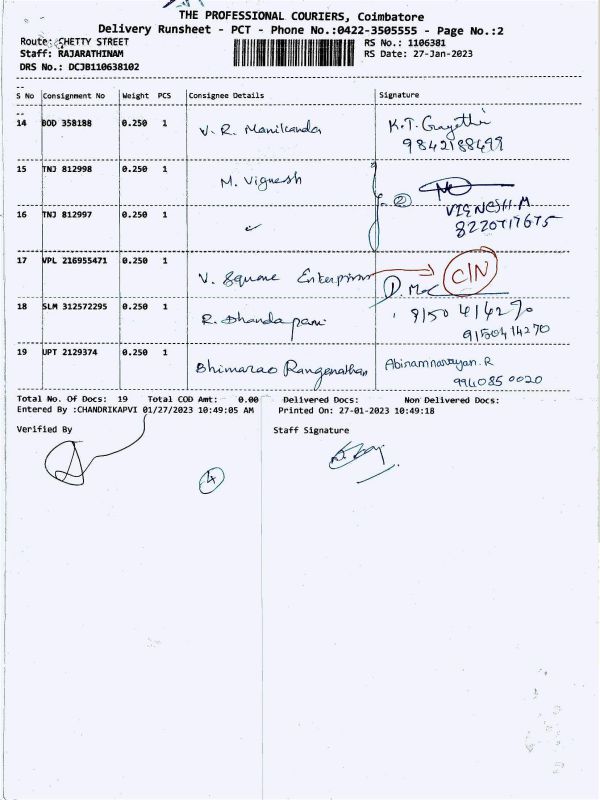 THE PROFESSIONAL COURIERS, Coimbatore
Delivery Runsheet - PCT - Phone No.:0422-3505555 - Page No.:2
Route: CHETTY STREET RS No.: 1106381
Staff: RAJARATHINAM RS Date: 27-Jan-2023
DRS No.: DCJB110638102
S No Consignment No Weight PCS Consignee Details Signature
14 BOD 358188 0.250 1 V. R. Manikanda K.T. Gayathri
9842188499
15 TNJ 812998 0.250 1 M. Vignesh
②
16 TNJ 812997 0.250 1 VIGNESH.M
8220717675
17 VPL 216955471 0.250 1 V. Square Enterprises C/N
18 SLM 312572295 0.250 1 R. Dhandapani
9150414270
19 UPT 2129374 0.250 1 Bhimarao Ranganathan Abinamnarayan.R
994085 0020
Total No. Of Docs: 19 Total COD Amt: 0.00 Delivered Docs: Non Delivered Docs:
Entered By :CHANDRIKAPVI 01/27/2023 10:49:05 AM Printed On: 27-01-2023 10:49:18
Verified By Staff Signature
4